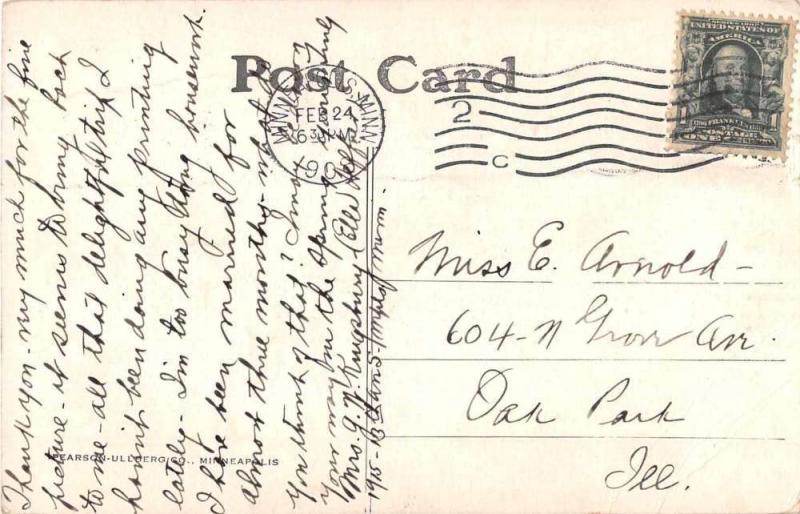 Post Card
MINNEAPOLIS, MINN.
FEB 24
630 PM
190
2
C
UNITED STATES OF
AMERICA
FRANKLIN
POSTAGE
ONE
Thank you - my much for the fine
picture - it seems to bring back
to me - all that delightful trip I
havn't been doing any printing
lately - I'm too busy doing housework.
I have been married for
almost three months - what do
you think of that? I may
your way in the spring
Mrs. G. W. Kingsbury (Ella
1915 - 13 Ave S -
PEARSON-ULLBERG CO., MINNEAPOLIS
Miss E. Arnold -
604 - N Grove Ave.
Oak Park
Ill.